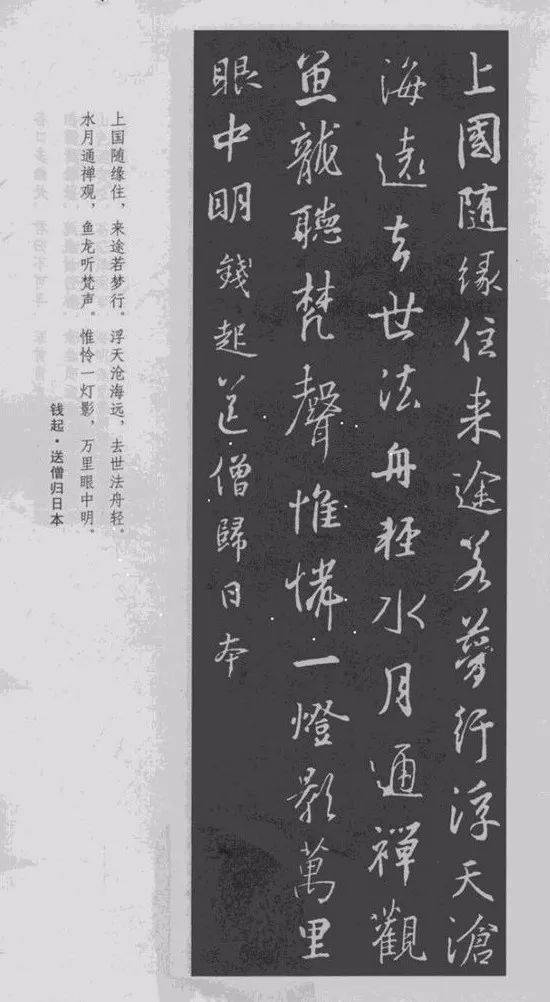 上國隨緣住来途若夢行浮天滄
海遠去世法舟輕水月通禪觀
魚龍聽梵聲惟憐一燈影萬里
眼中明 錢起送僧歸日本
上国随缘住，来途若梦行。浮天沧海远，去世法舟轻。
水月通禅观，鱼龙听梵声。惟怜一灯影，万里眼中明。
钱起·送僧归日本